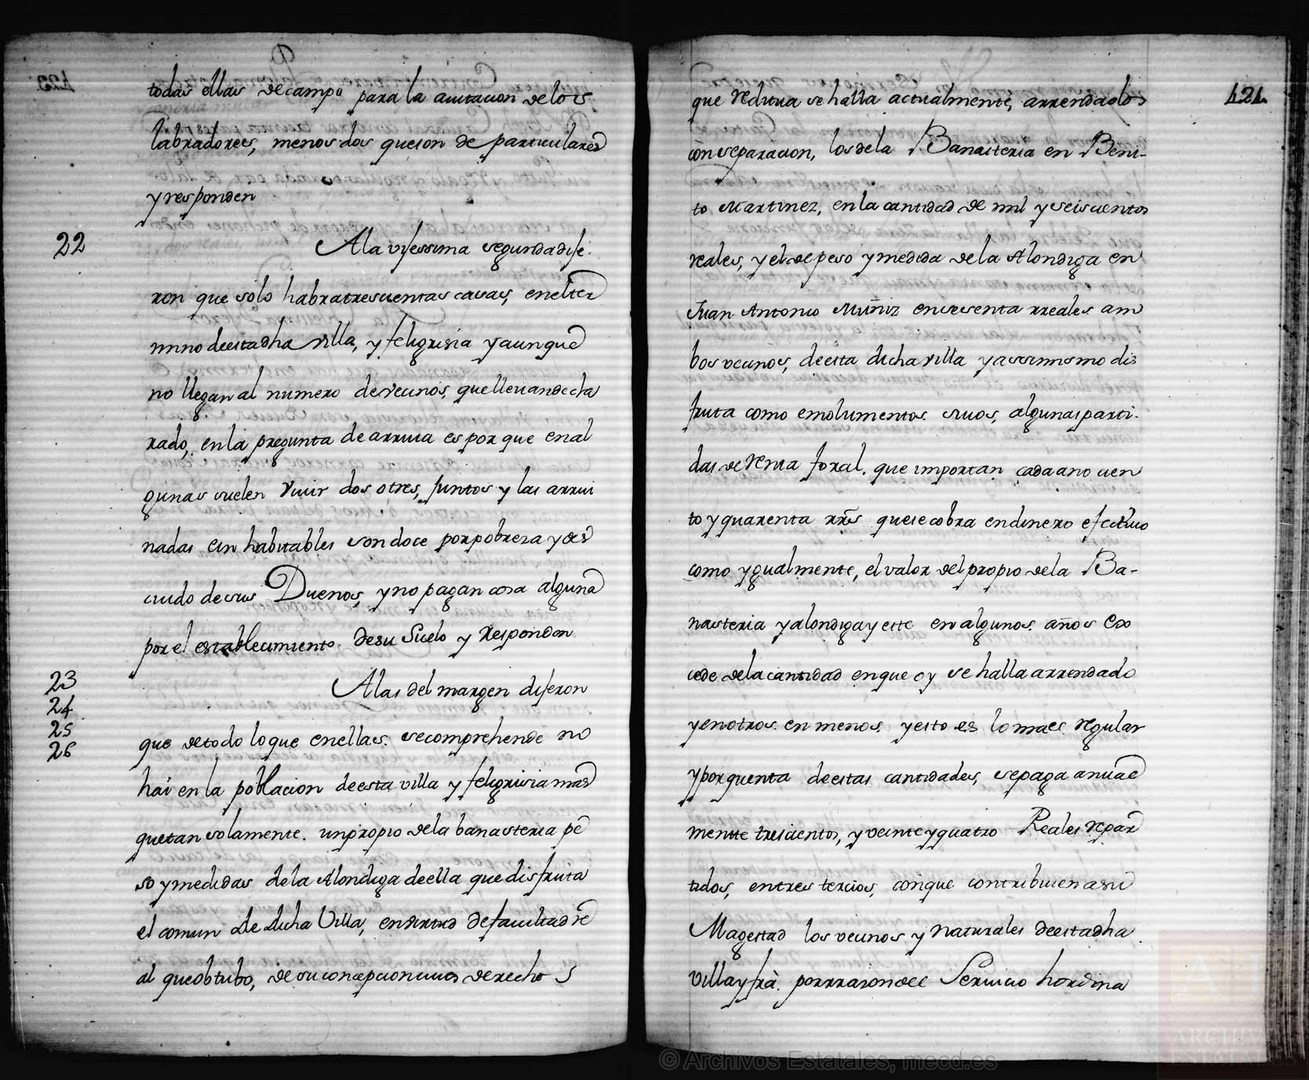 todas ellas de campo para la avitacion de los
labradores, menos dos que son de particulares
y responden
22
A la vijessima segunda dije
ron que solo habra trescientas casas, en el ter
mino de esta dha villa, y feligrisia y aunque
no llegan al numero de vecinos, que llevan decla
rado, en la pregunta de arriva es por que en al
gunas suelen vivir dos o tres juntos y las arrui
nadas e in habitables son doce por pobreza y des
cuido de sus Duenos, y no pagan cosa alguna
por el establecimiento de su Suelo y Responden
23
24
25
26
A las del margen dijeron
que de todo lo que en ellas se comprehende no
hai en la poblacion de esta villa y feligrisia mas
que tan solamente un propio de la banasteria pe
so y medidas de la Alondiga de ella que disfruta
el comun de dicha Villa, en virtud de facultad re
al que obtubo, de su concepcion cuios derechos
121
que reditua se halla actualmente, arrendado
con separacion, los de la Banasteria en Beni
to Martinez, en la cantidad de mil y seiscientos
reales, y el de peso y medida de la Alondiga en
Juan Antonio Muñiz en sesenta rreales am
bos vecinos, de esta dicha villa y assimismo dis
fruta como emolumentos suios, algunas parti
das de renta foral, que importan cada ano cien
to y quarenta rrs que se cobra en dinero efectivo
como ygualmente, el valor del propio de la Ba-
nasteria y alondiga y este en algunos años ex
cede de la cantidad en que oy se halla arrendado
y en otros en menos y esto es lo mas regular
y por quenta de estas cantidades, se paga anual
mente trescientos, y veinte y quatro Reales repar
tidos, en tres tercios, con que contribuien a su
Magestad los vecinos y naturales de esta dha
villa y fra. por rrazon del Servicio hordina
© Archivos Estatales, mecd.es
ARCHIVOS
ESTATALES